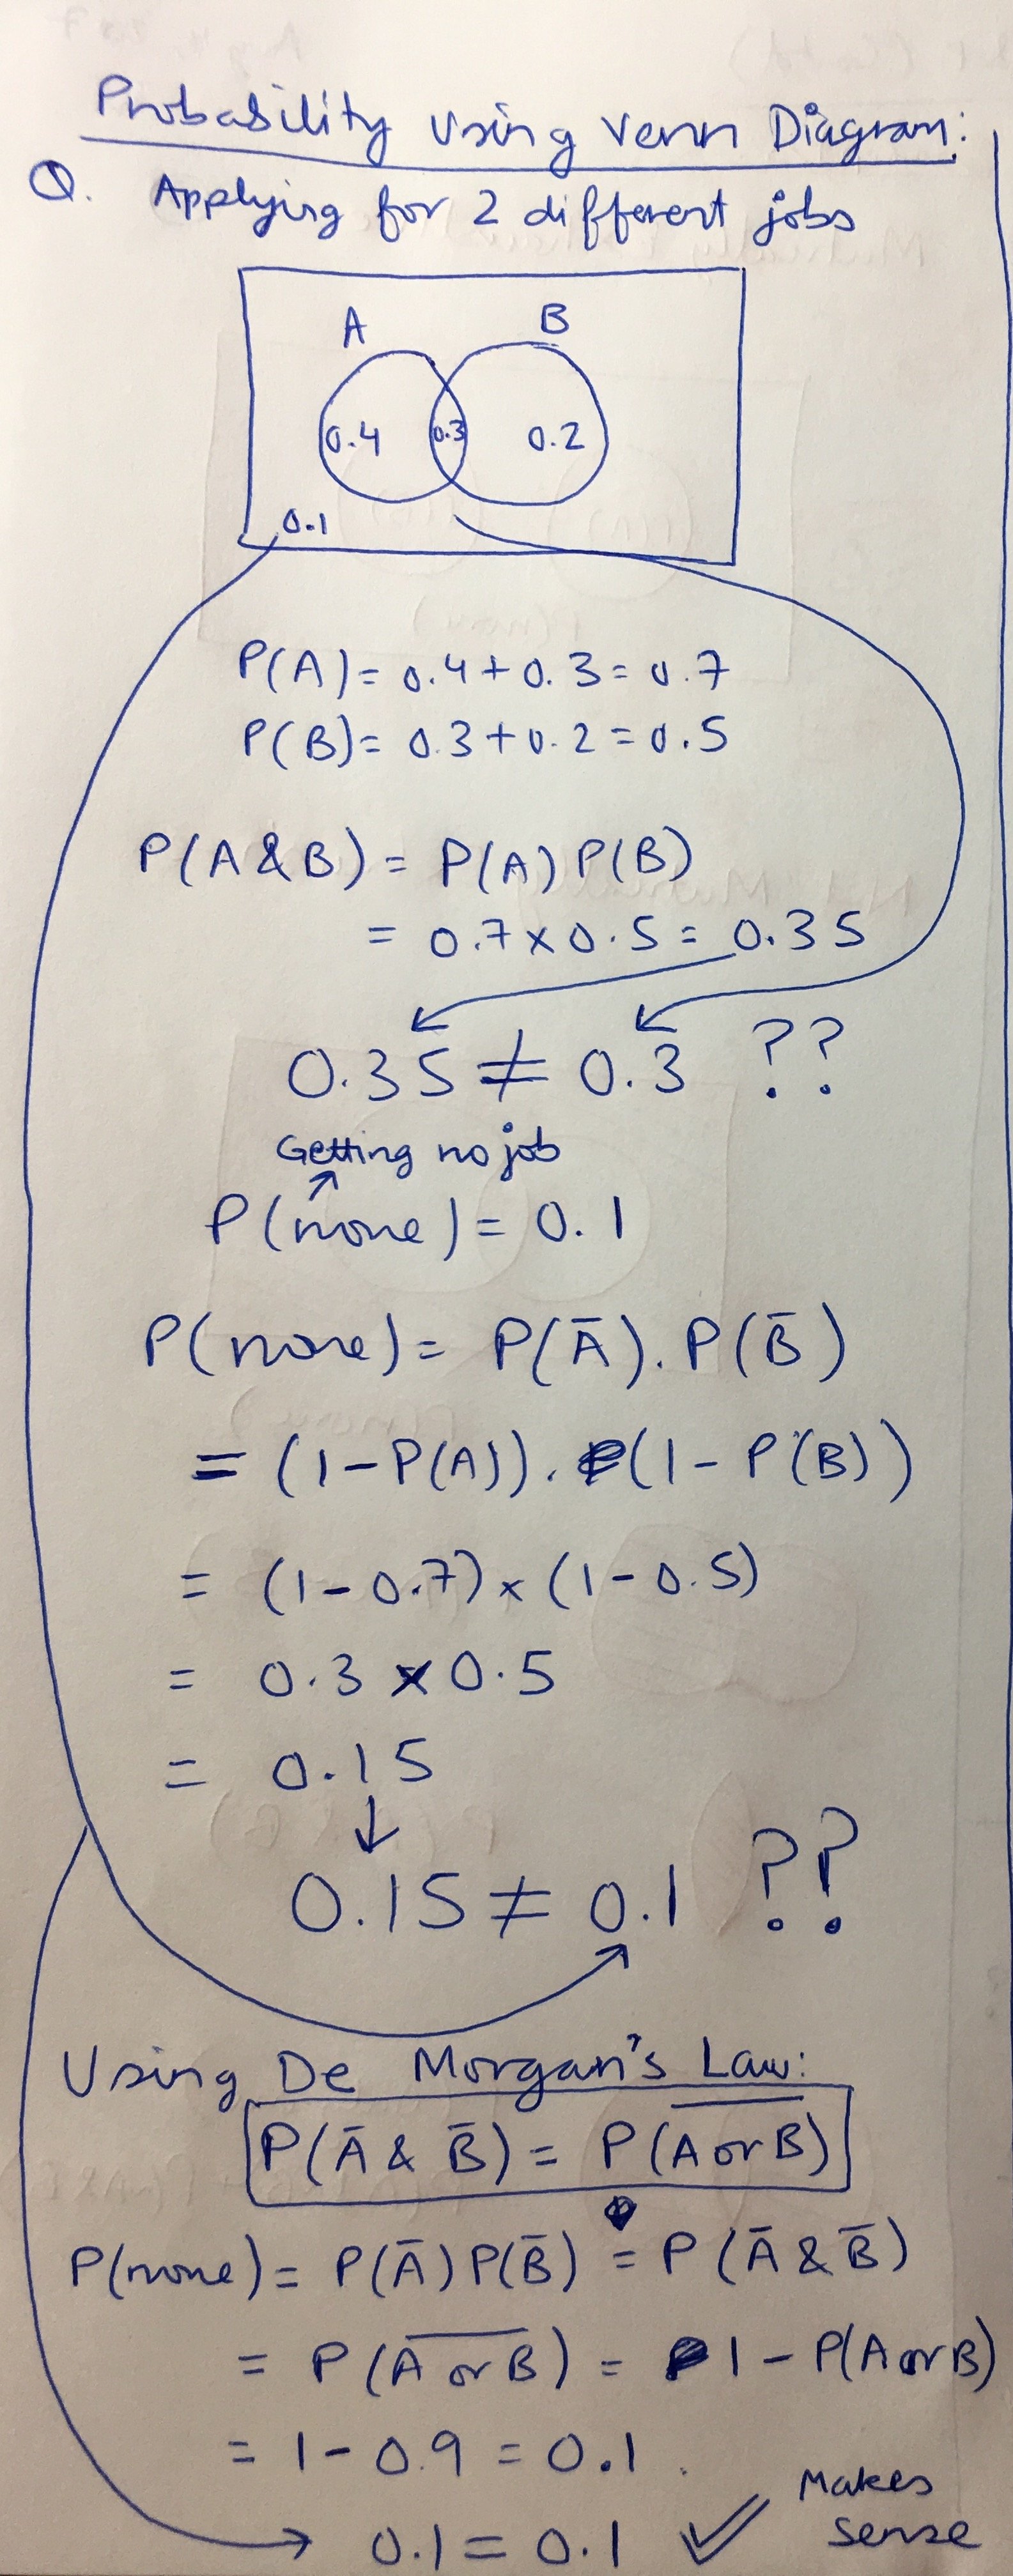 Probability Using Venn Diagram:
Q. Applying for 2 different jobs
A B
0.4 0.3 0.2
0.1
P(A) = 0.4 + 0.3 = 0.7
P(B) = 0.3 + 0.2 = 0.5
P(A & B) = P(A) P(B)
= 0.7 × 0.5 = 0.35
0.35 ≠ 0.3 ??
Getting no job
P(none) = 0.1
P(none) = P(Ā). P(B̄)
= (1 - P(A)). (1 - P(B))
= (1 - 0.7) × (1 - 0.5)
= 0.3 × 0.5
= 0.15
0.15 ≠ 0.1 ??
Using De Morgan's Law:
P(Ā & B̄) = P(A̅ ̅o̅r̅ ̅B̅)
P(none) = P(Ā) P(B̄) = P(Ā & B̄)
= P(A̅ ̅o̅r̅ ̅B̅) = 1 - P(A or B)
= 1 - 0.9 = 0.1.
0.1 = 0.1 ✓ Makes
sense